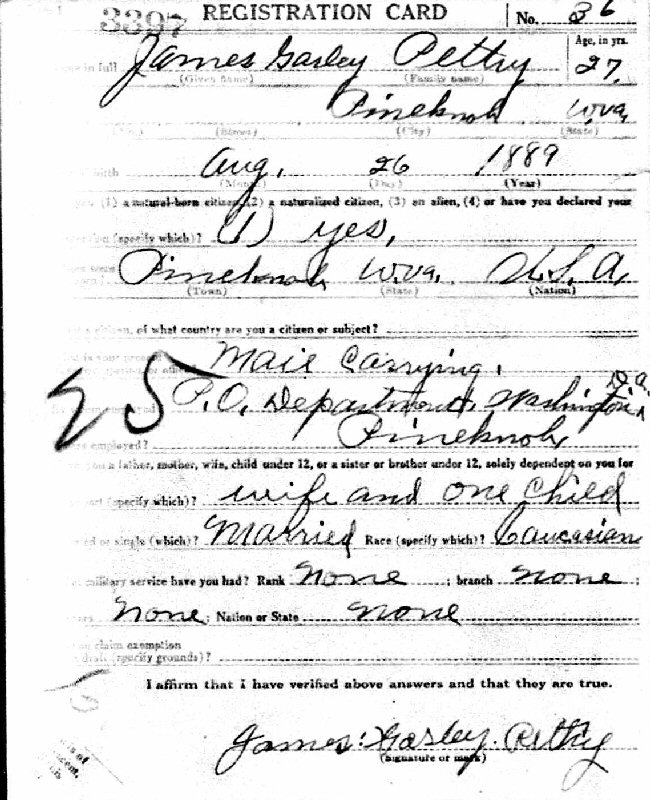 3397 REGISTRATION CARD No. 36
James Gasley Pettry Age, in yrs. 27.
in full (Given name) (Family name)
Pineknob W.va.
(Street) (City) (State)
birth Aug. 26 1889
(Month) (Day) (Year)
you (1) a natural-born citizen, (2) a naturalized citizen, (3) an alien, (4) or have you declared your
(specify which)? (1) yes,
Pineknob W.va. U.S.A.
(Town) (State) (Nation)
citizen, of what country are you a citizen or subject?
Mail Carrying.
25 P.O. Department, Washington
Pineknob
employed?
you a father, mother, wife, child under 12, or a sister or brother under 12, solely dependent on you for
(specify which)? wife and one child
or single (which)? Married Race (specify which)? Caucasian
military service have you had? Rank None ; branch none ;
None ; Nation or State none
claim exemption
draft (specify grounds)?
I affirm that I have verified above answers and that they are true.
James Gasley Pettry
(Signature or mark)